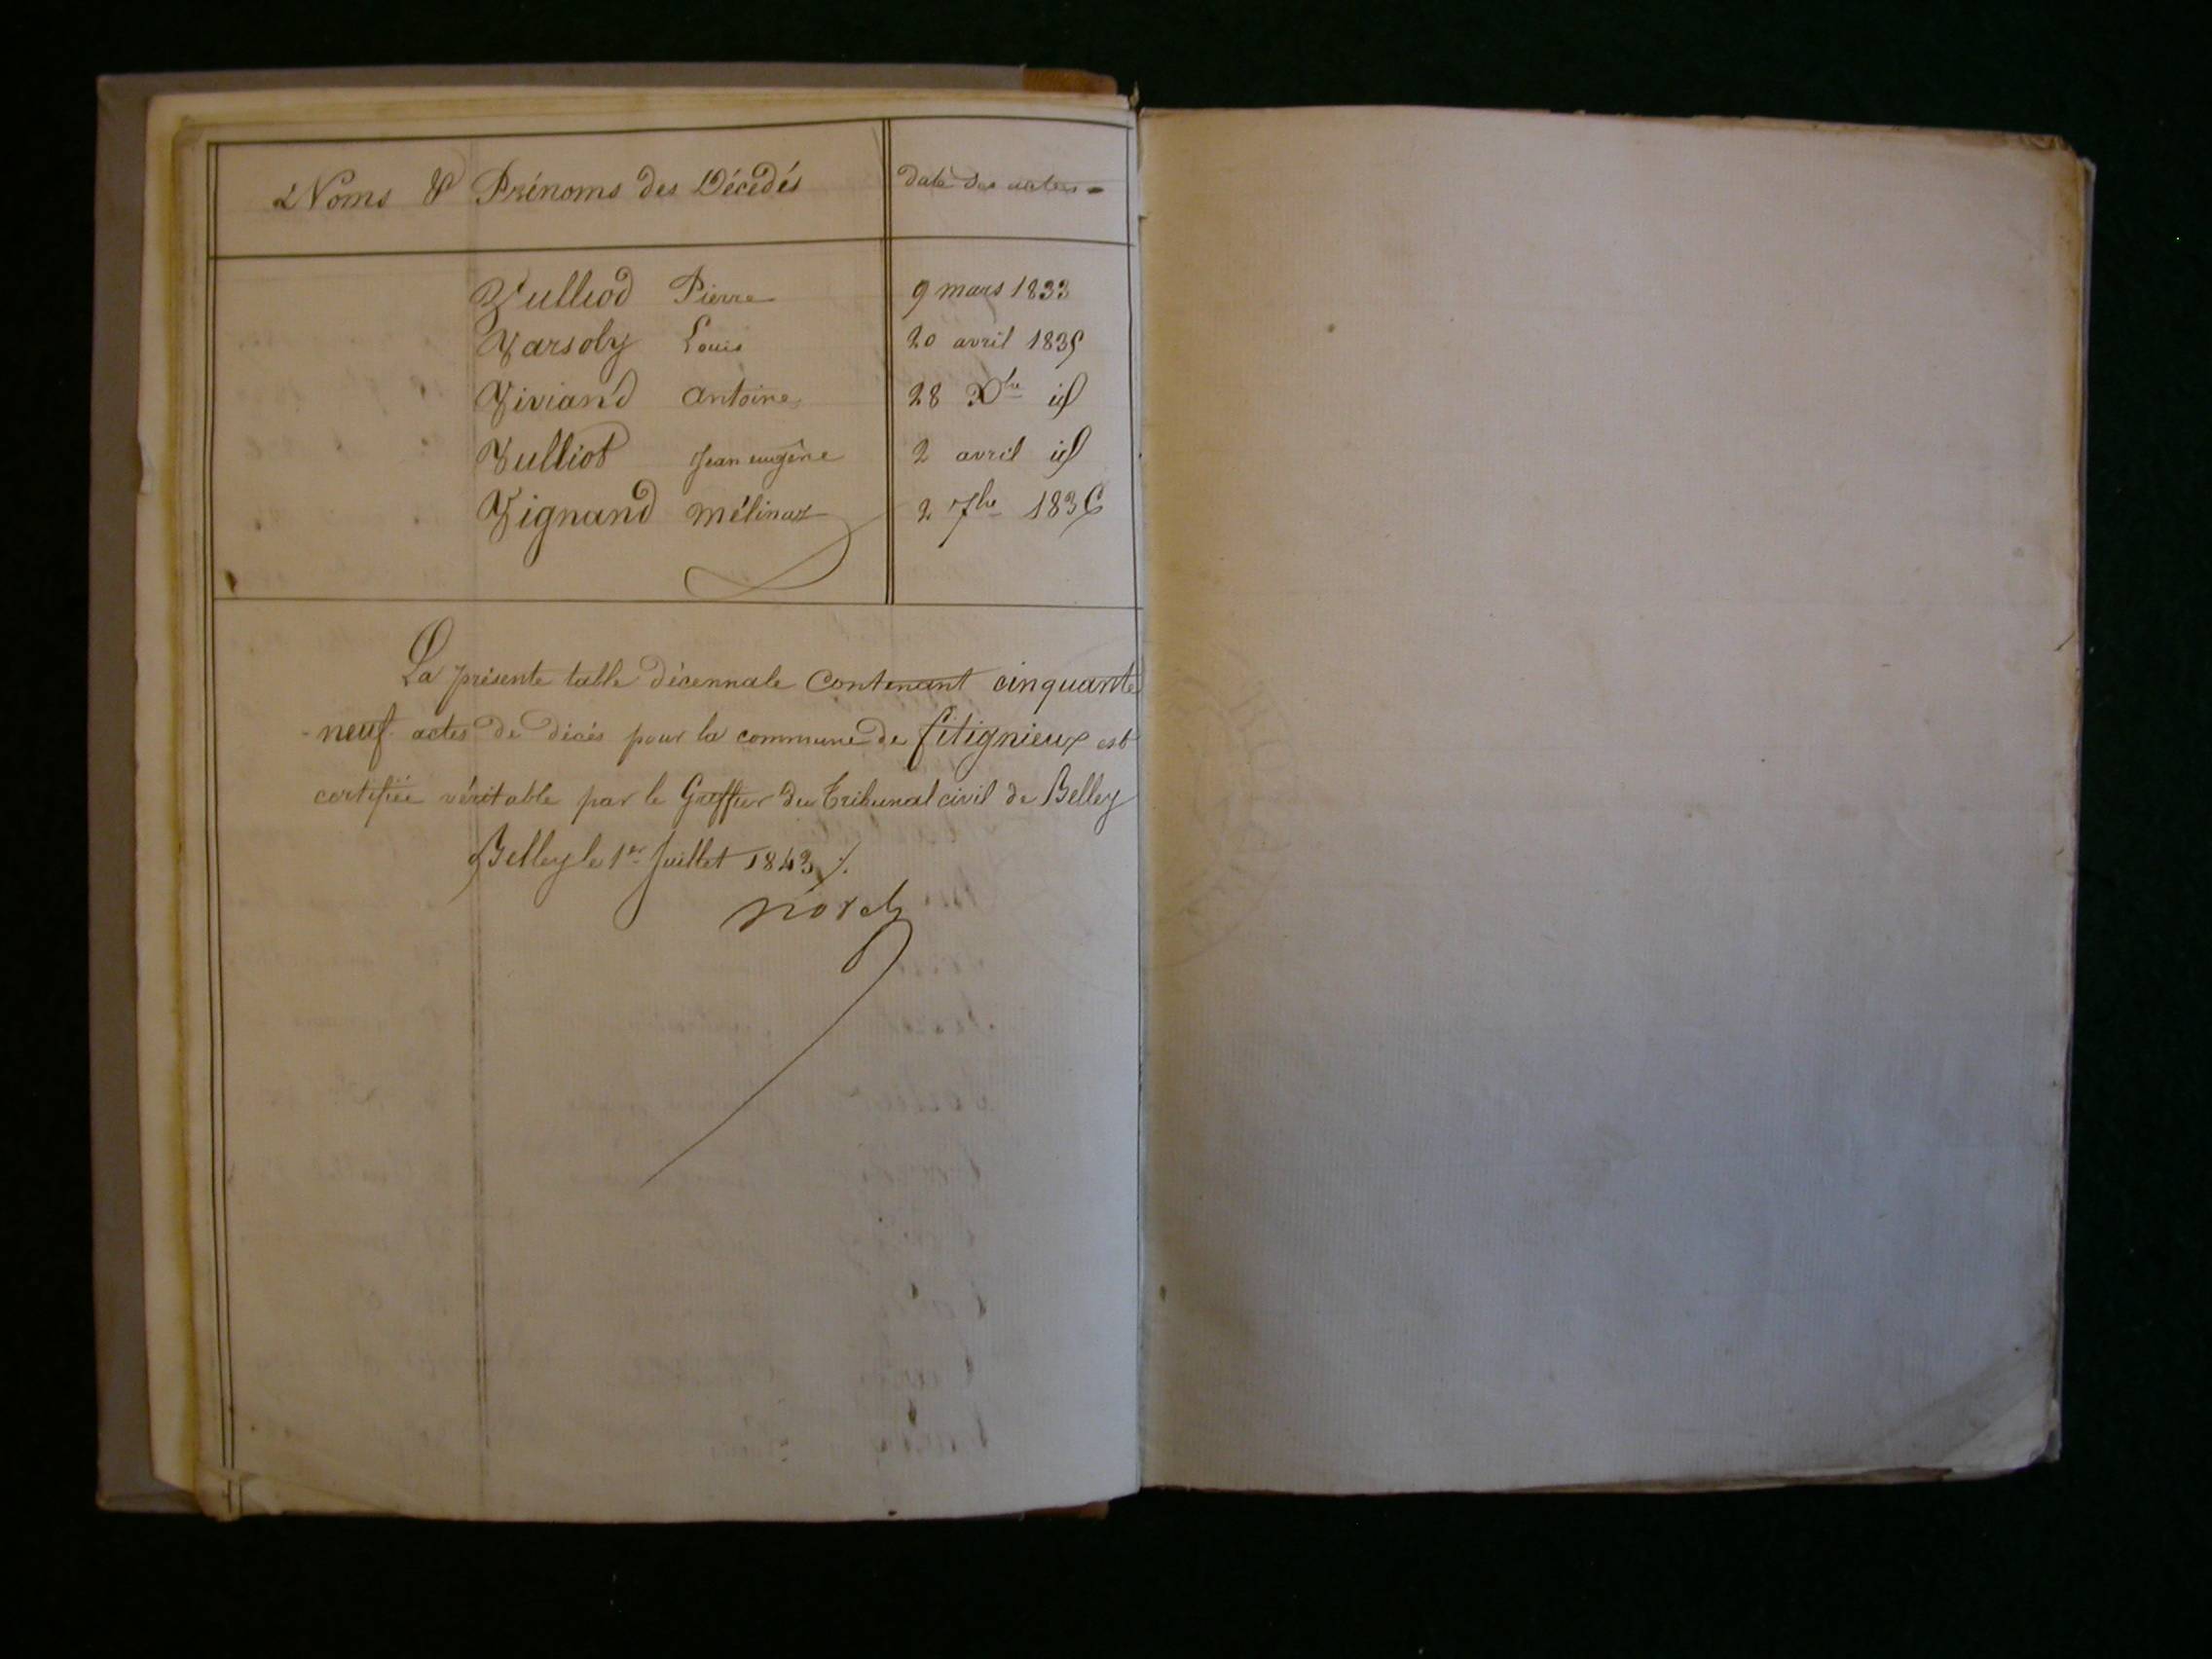 Noms & Prénoms des Décédés date des actes =
Vulliod Pierre 9 mars 1833
Varsoly Louis 20 avril 1835
Viviand antoine 28 Xbre id
Vulliot Jean eugène 2 avril id
Vignand Mélinaz 2 7bre 1836
La présente table décennale contenant cinquante
-neuf actes de décès pour la commune de fitignieux est
certifiée véritable par le Greffier du Tribunal civil de Belley
Belley le 1er Juillet 1843 /.